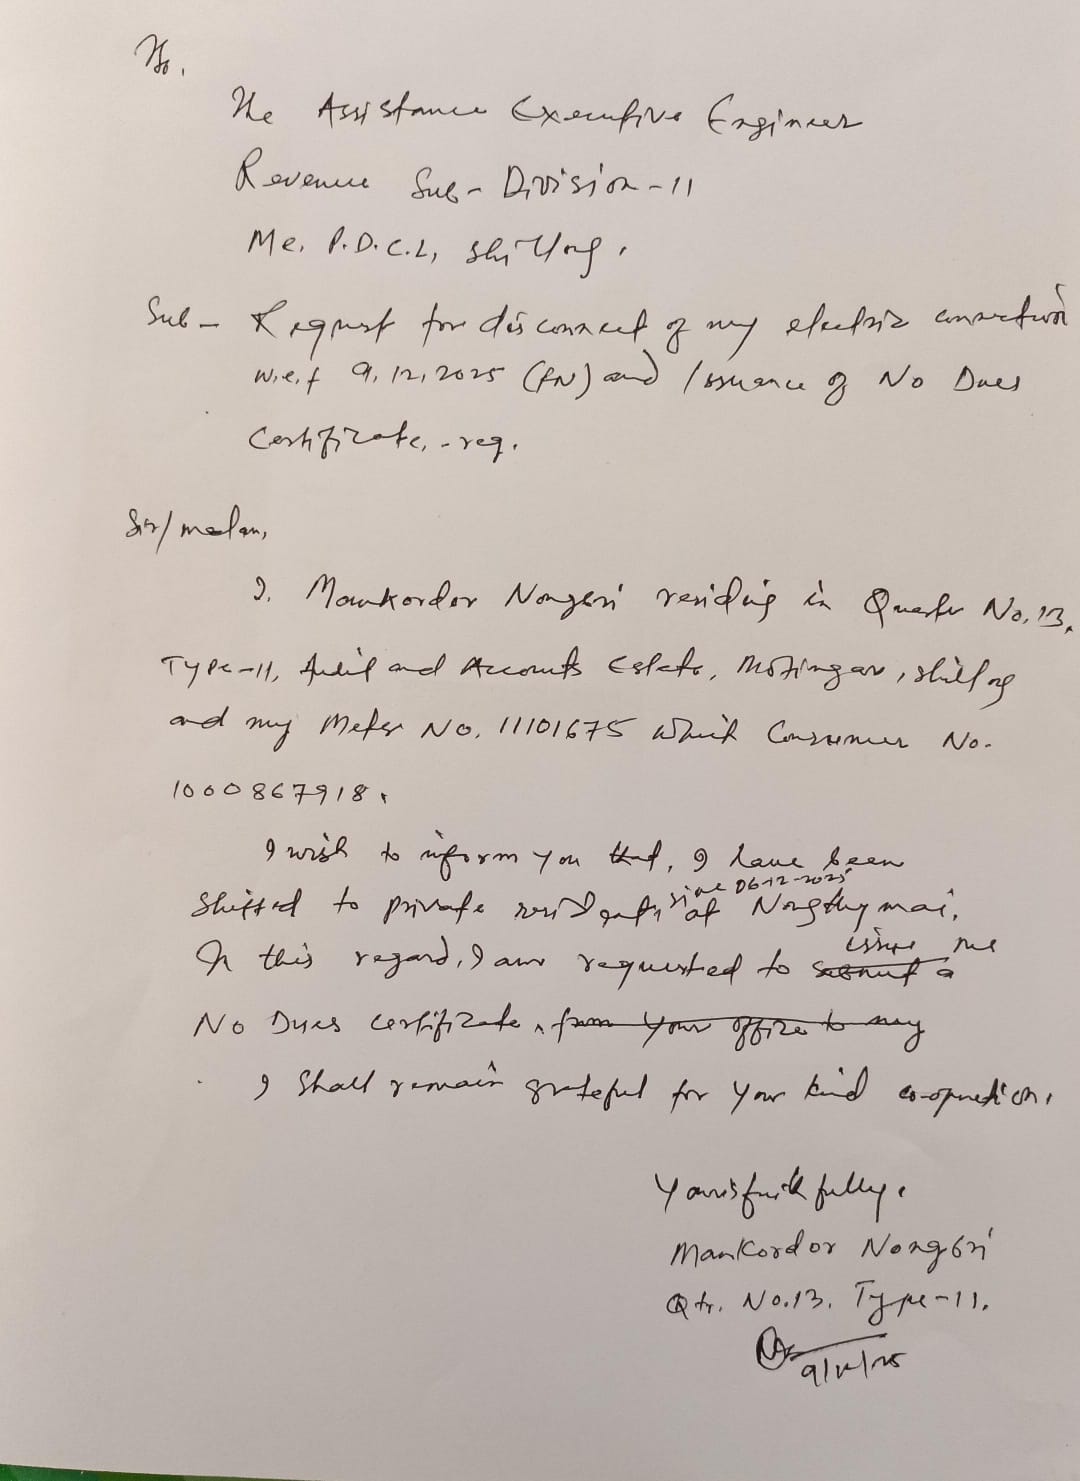 To,
The Assistance Executive Engineer
Revenue Sub-Division-11
Me. P.D.C.L, Shillong.
Sub- Request for disconnect of my electric connection
w.e.f 9.12.2025 (FN) and Issuance of No Dues
Certificate, -reg.
Sir/madam,
I. Mankordor Nongbri residing in Quarter No. 13,
Type-11, Audit and Accounts Estate, Motinagar, Shillong
and my Meter No. 11101675 which Consumer No.
1000867918.
I wish to inform you that, I have been
since 06-12-2025
Shifted to private at Nongthymmai.
issue me
In this regard, I am requested to submit a
No Dues Certificate, from your office to my
I shall remain grateful for your kind co-operation.
Yours faithfully,
Mankordor Nongbri
Qtr. No.13. Type-11.
9/12/25